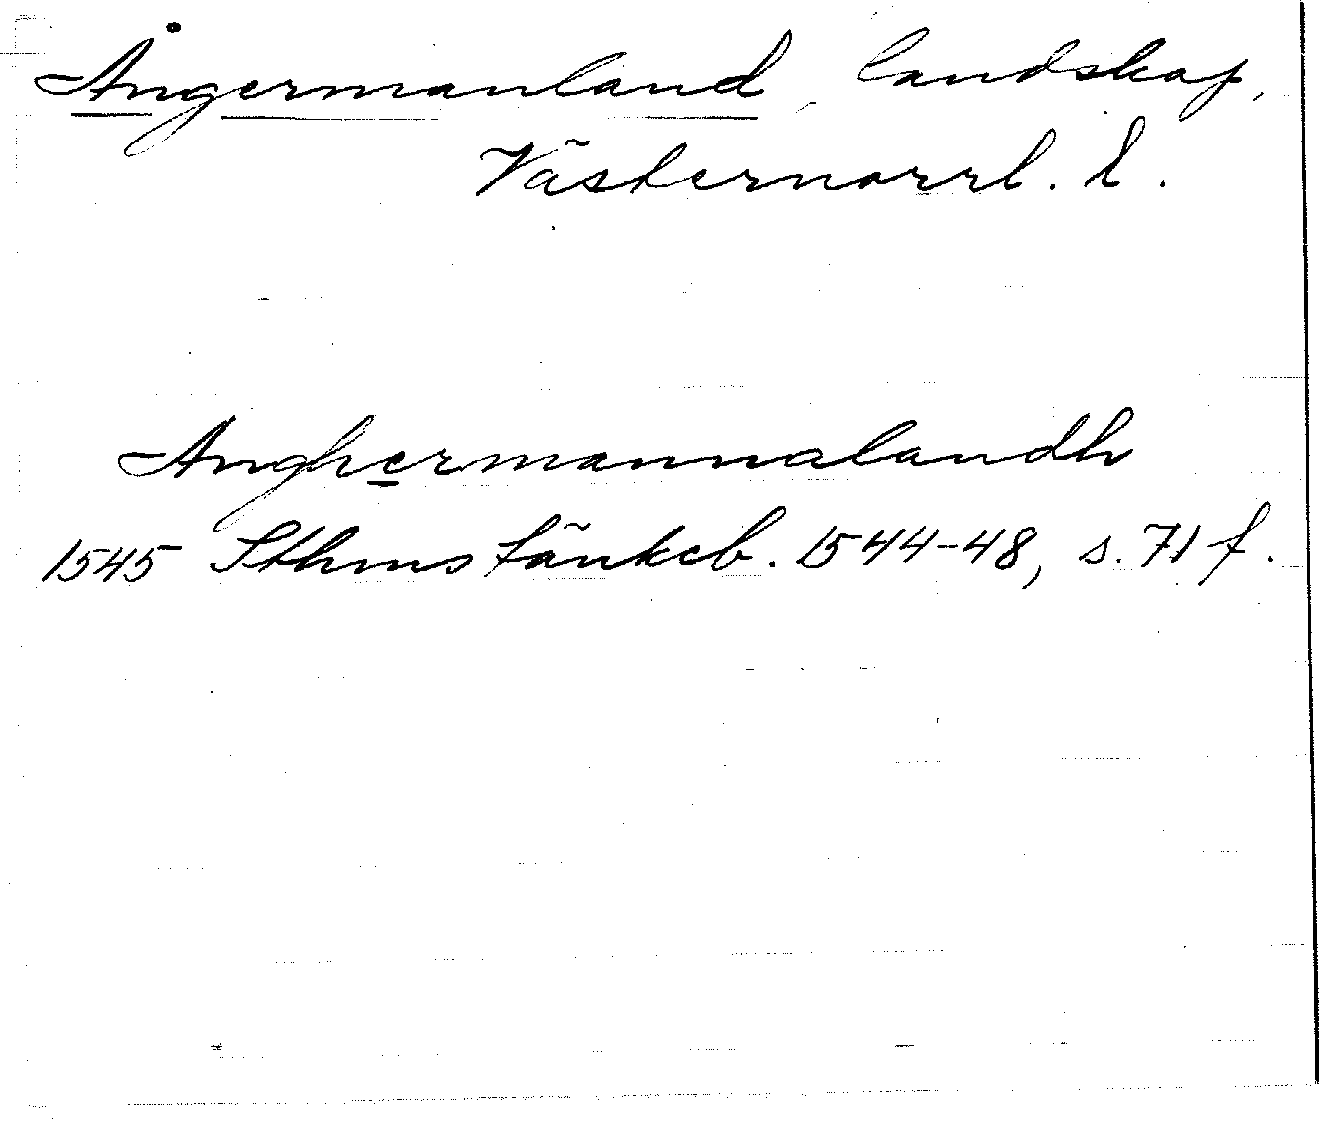 Ångermanland, landskap,
Västernorrl. l.
Anghermannalandh
1545 Sthms tänkeb. 1544-48, s. 71 f.